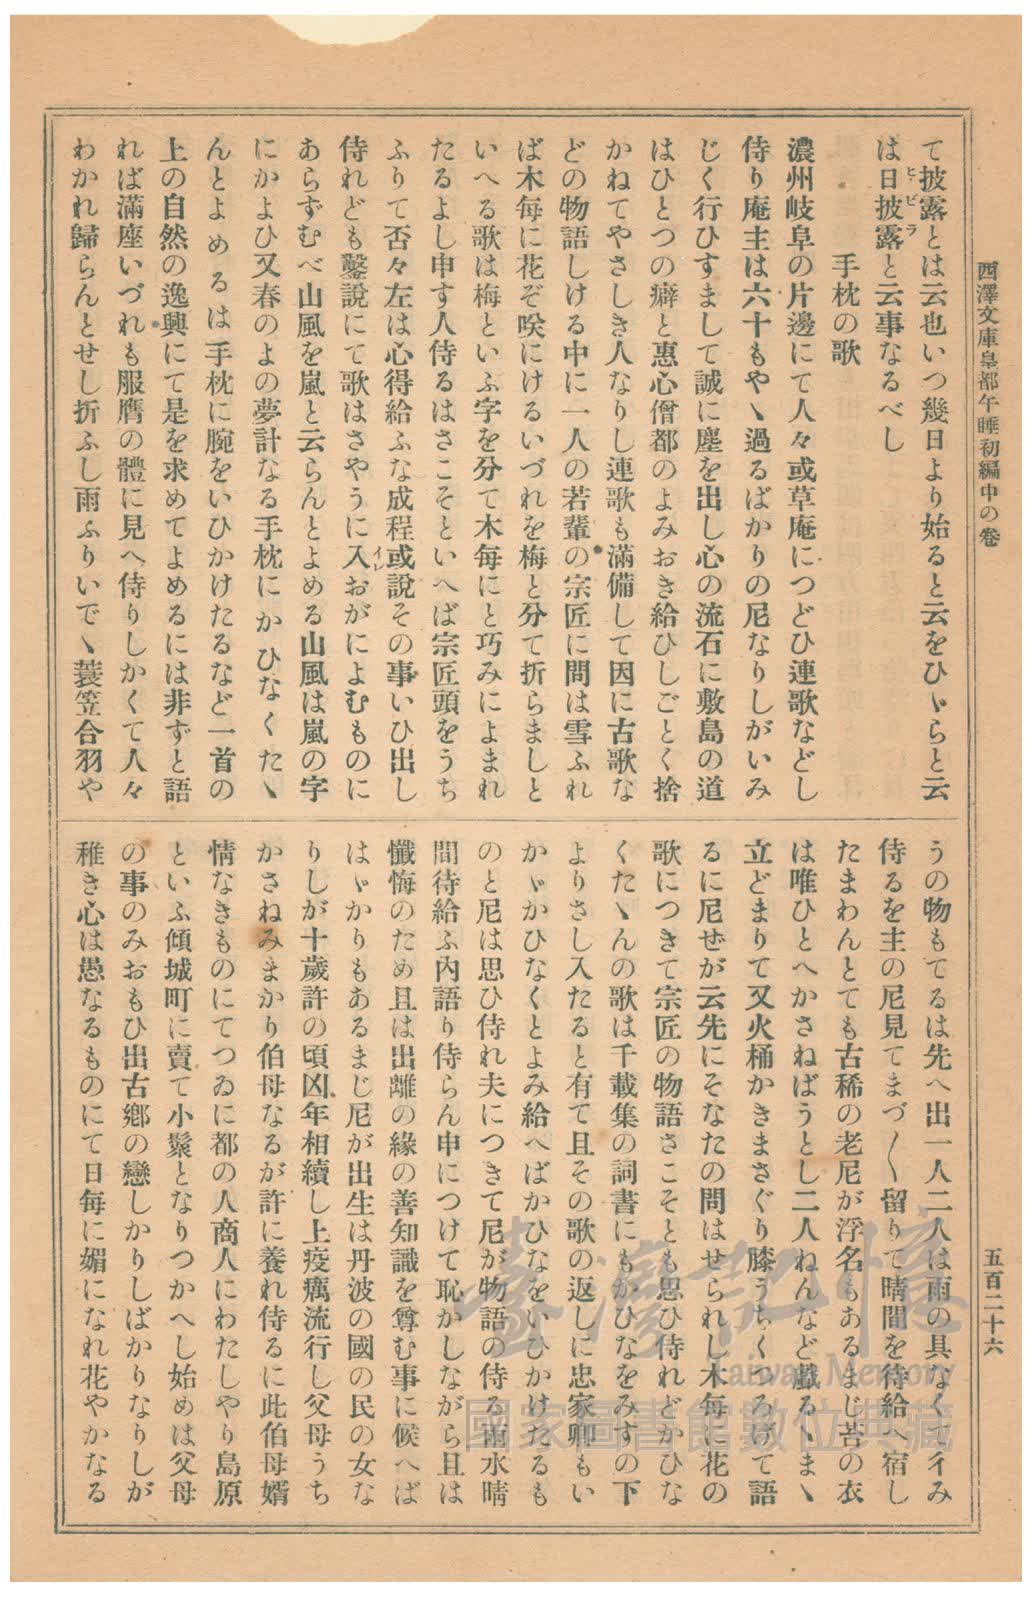 西澤文庫皇都午睡初編中の卷
五百二十六
て披露とは云也いつ幾日より始ると云をひゞらと云
は日披露と云事なるべし
ヒビラ
手枕の歌
濃州岐阜の片邊にて人々或草庵につどひ連歌などし
侍り庵主は六十もやゝ過るばかりの尼なりしがいみ
じく行ひすまして誠に塵を出し心の流石に敷島の道
はひとつの癖と惠心僧都のよみおき給ひしごとく捨
かねてやさしき人なりし連歌も滿備して因に古歌な
どの物語しける中に一人の若輩の宗匠に問は雪ふれ
ば木每に花ぞ咲にけるいづれを梅と分て折らましと
いへる歌は梅といふ字を分て木每にと巧みによまれ
たるよし申す人侍るはさこそといへば宗匠頭をうち
ふりて否々左は心得給ふな成程或說その事いひ出し
侍れども鑿說にて歌はさやうに入おがによむものに
イレ
あらずむべ山風を嵐と云らんとよめる山風は嵐の字
にかよひ又春のよの夢計なる手枕にかひなくたゝ
んとよめるは手枕に腕をいひかけたるなど一首の
上の自然の逸興にて是を求めてよめるには非ずと語
れば滿座いづれも服膺の體に見へ侍りしかくて人々
わかれ歸らんとせし折ふし雨ふりいでゝ蓑笠合羽や
うの物もてるは先へ出一人二人は雨の具なくて彳み
侍るを主の尼見てまづ〳〵留りて晴間を待給へ宿し
たまわんとても古稀の老尼が浮名もあるまじ苔の衣
は唯ひとへかさねばうとし二人ねんなど戲るゝまゝ
立どまりて又火桶かきまさぐり膝うちくつろげて語
るに尼ぜが云先にそなたの問はせられし木每に花の
歌につきて宗匠の物語さこそとも思ひ侍れどかひな
くたゝんの歌は千載集の詞書にもかひなをみすの下
よりさし入たると有て且その歌の返しに忠家卿もい
かゞかひなくとよみ給へばかひなをいひかけたるも
のと尼は思ひ侍れ夫につきて尼が物語の侍る雨水晴
間待給ふ內語り侍らん申につけて恥かしながら且は
懺悔のため且は出離の緣の善知識を尊む事に候へば
はゞかりもあるまじ尼が出生は丹波の國の民の女な
りしが十歲許の頃凶年相續し上疫癘流行し父母うち
かさねみまかり伯母なるが許に養れ侍るに此伯母婿
情なきものにてつゐに都の人商人にわたしやり島原
といふ傾城町に賣て小鬟となりつかへし始めは父母
の事のみおもひ出古鄉の戀しかりしばかりなりしが
稚き心は愚なるものにて日每に媚になれ花やかなる
臺灣記憶
Taiwan Memory
國家圖書館數位典藏